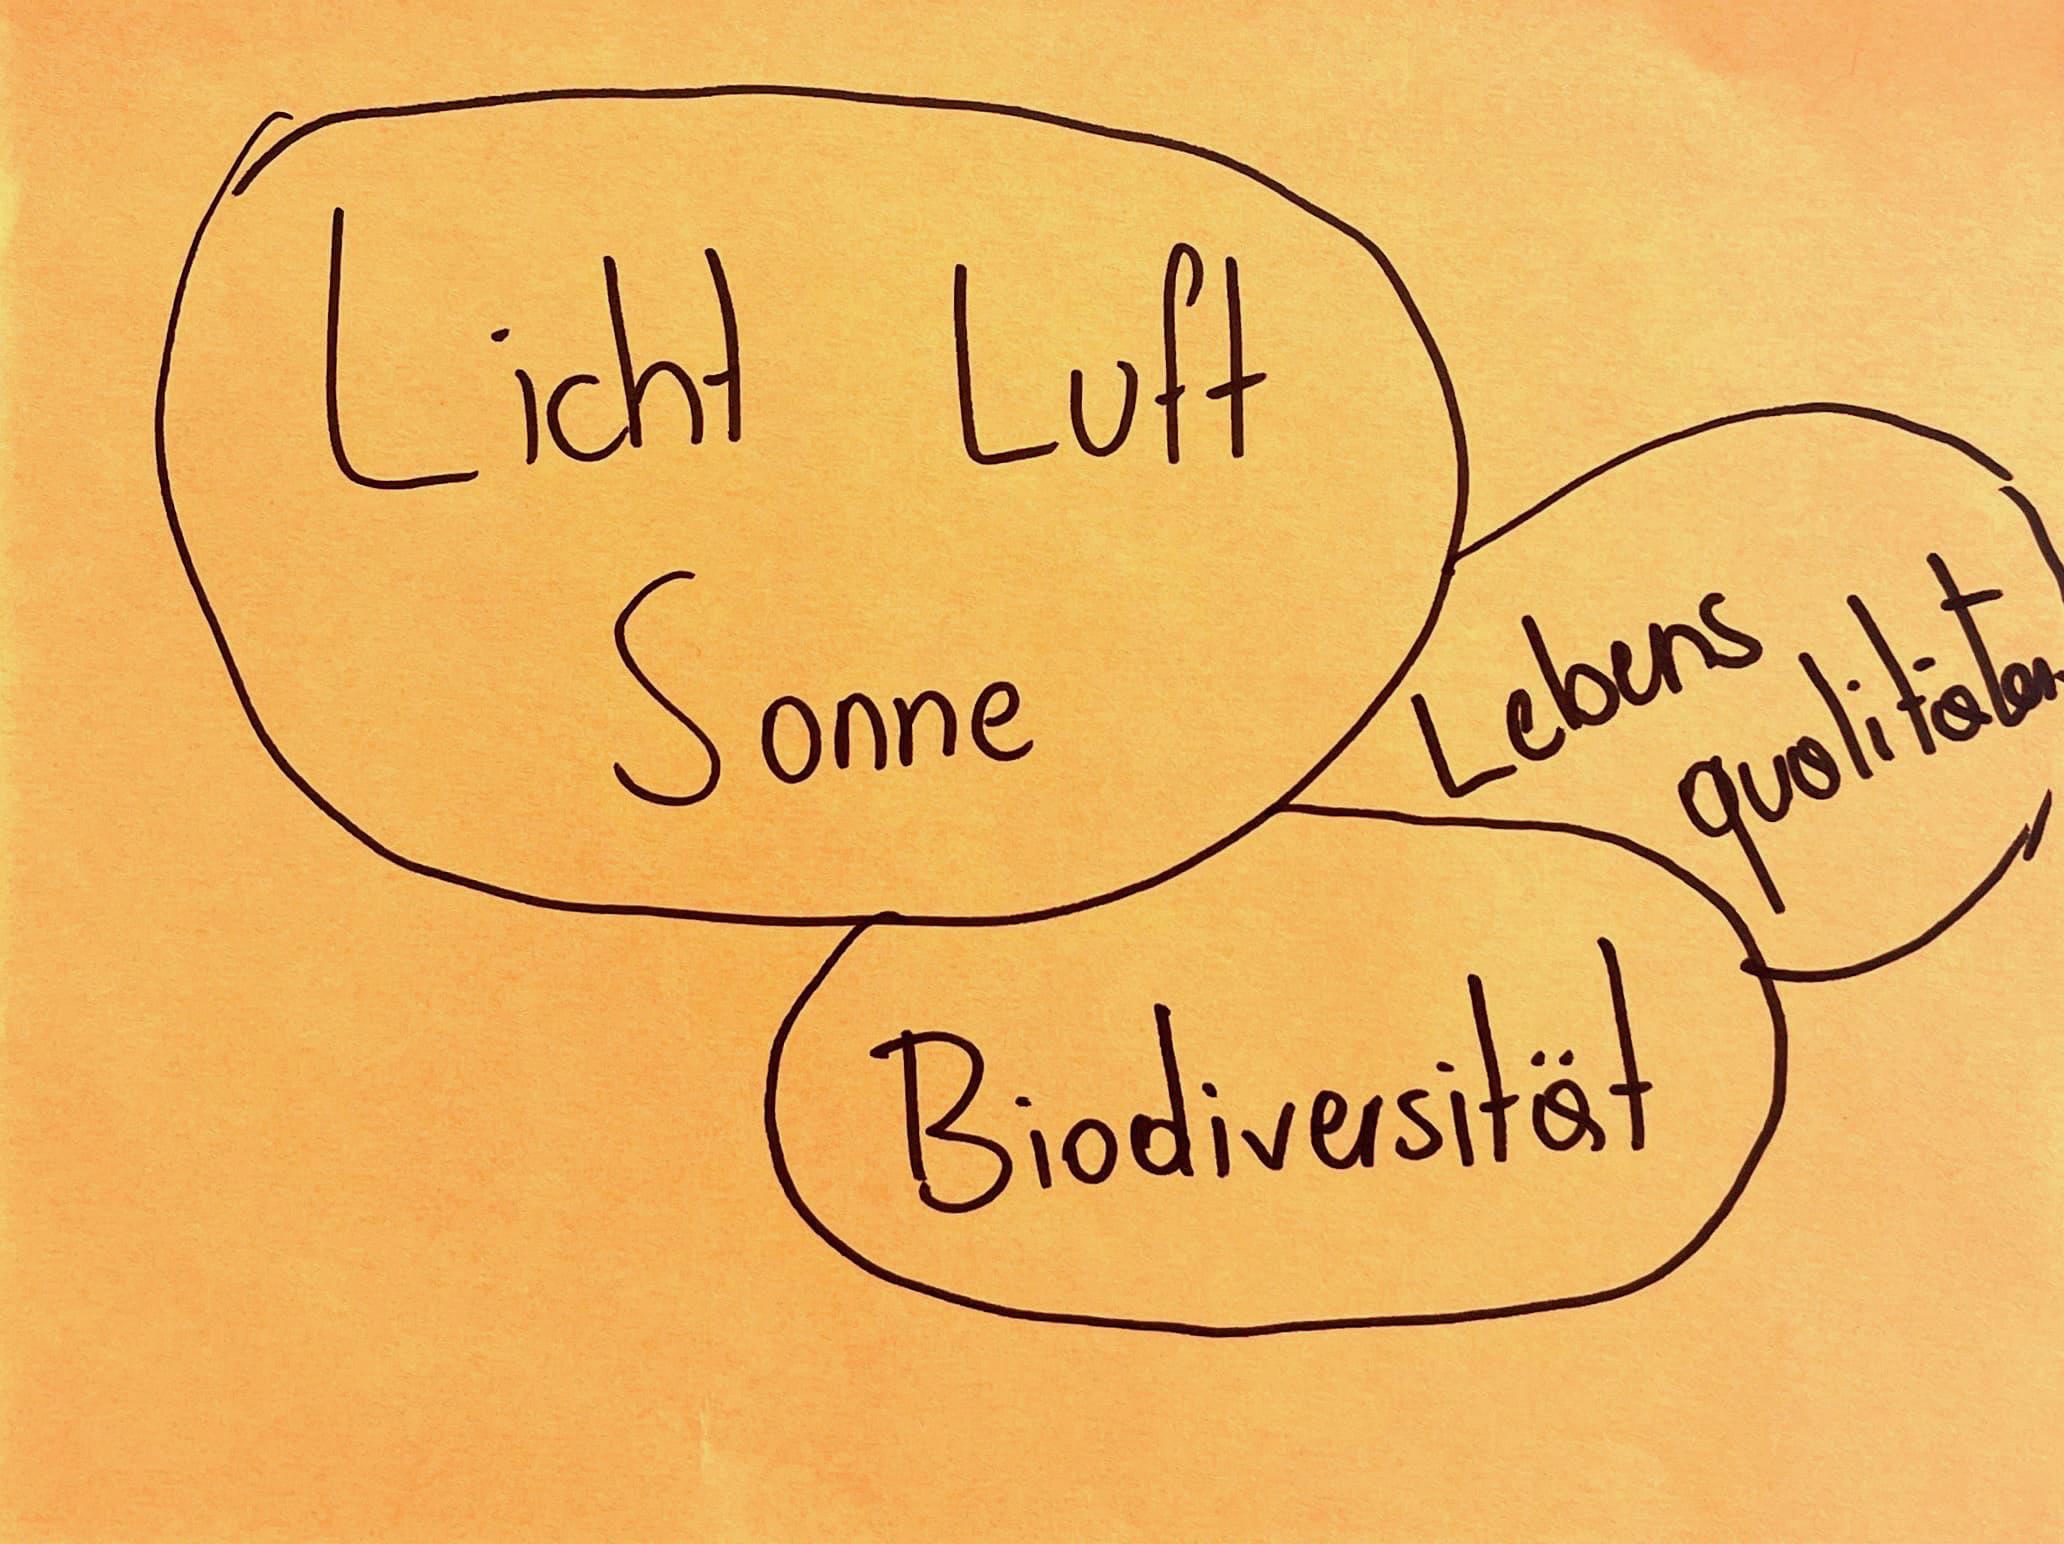 Licht Luft
Sonne
Lebens
qualitäten
Biodiversität